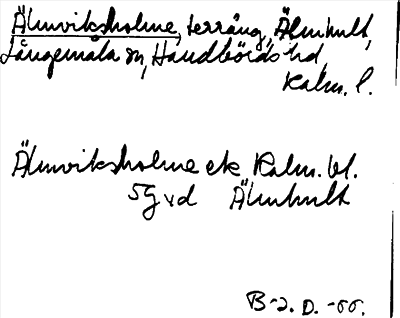 Älmviksholme, terräng, Älmhult,
Långemåla sn, Handbörds hd,
Kalm. l.
Älmviksholme ek Kalm. bl.
5G vd Älmhult
B-2. D. -55.